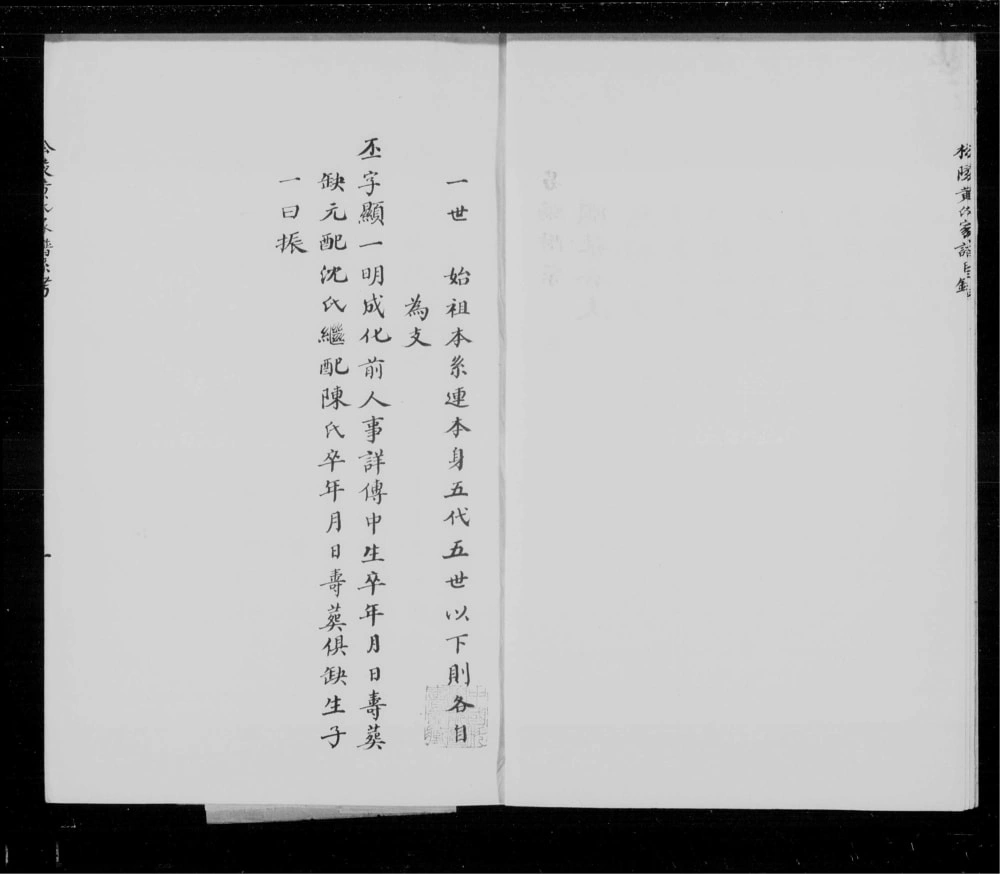 松陵黄氏家譜
一世　始祖本系連本身五代五世以下則各自
為支
丕字顯一明成化前人事詳傳中生卒年月日壽葬
缺元配沈氏繼配陳氏卒年月日壽葬俱缺生子
一曰振
一